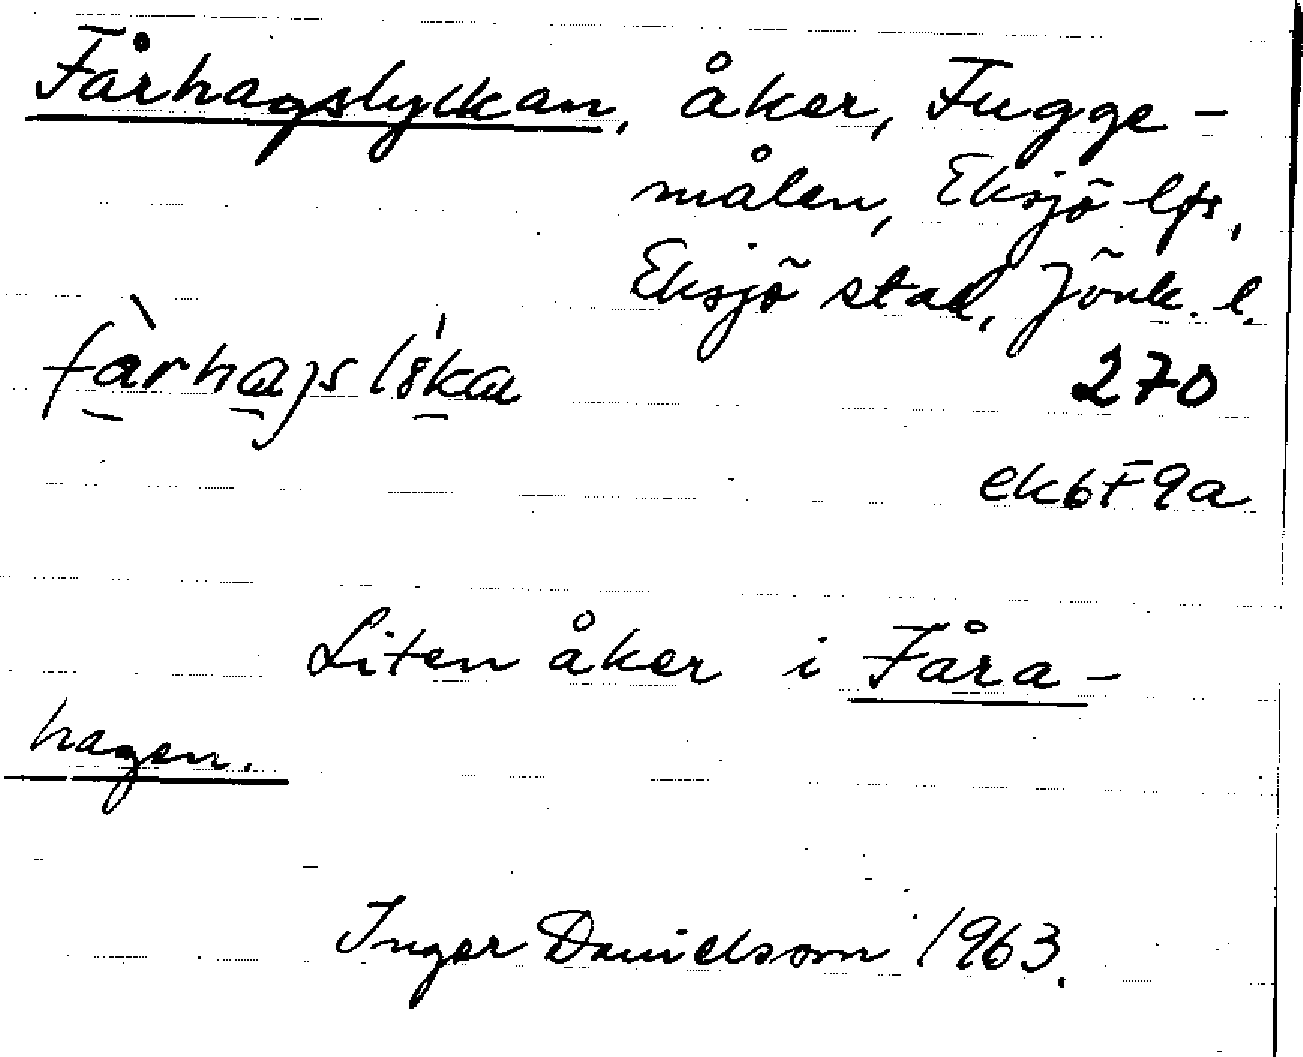 Fårhagslyckan, åker, Fugge-
målen, Eksjö lfs,
Eksjö stad, Jönk. l.
270
ek6F9a
Liten åker i Fåra-
hagen.
Inger Danielsson 1963.